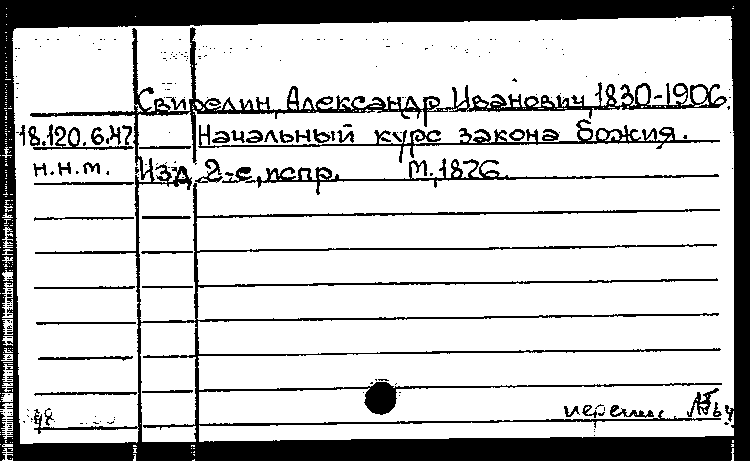 Свирелин, Александр Иванович, 1830-1906.
18.120.6.47 Начальный курс закона божия.
н.н.т. Изд. 2-е, испр. М., 1876.
48